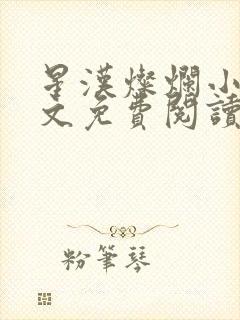 星漢燦爛小
文免費閱讀
粉筆琴